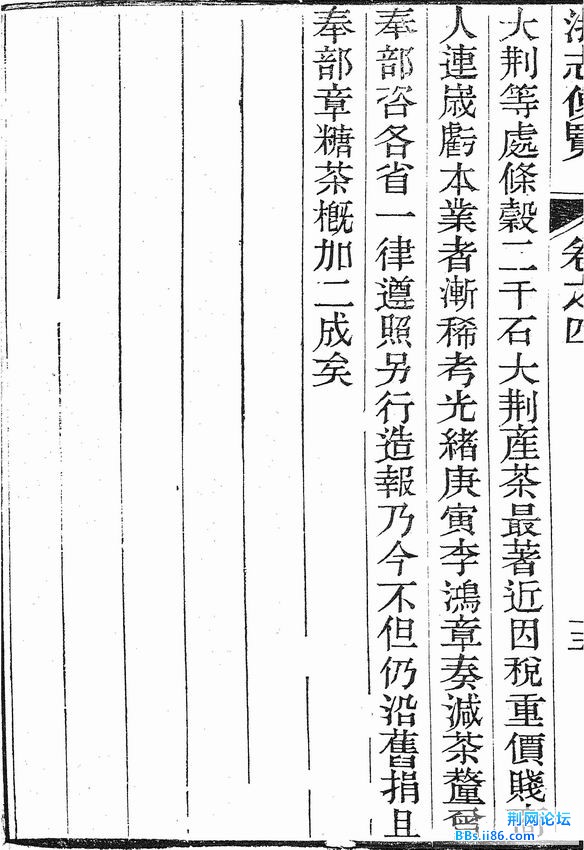 志便覽 卷之四 三
大荆等處條穀二千石大荆産茶最著近因稅重價賤
人連歲虧本業者漸稀考光緒庚寅李鴻章奏減茶釐曾
奉部咨各省一律遵照另行造報乃今不但仍沿舊捐且
奉部章糖茶概加二成矣
荆网论坛
BBs.ii86.com